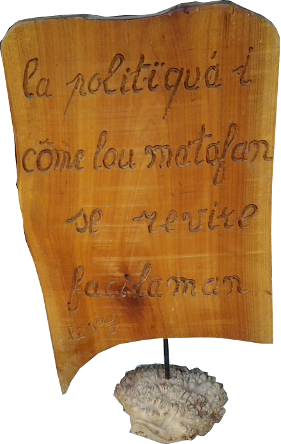 la politïquá i
côme lou matafan
se revire
facilaman